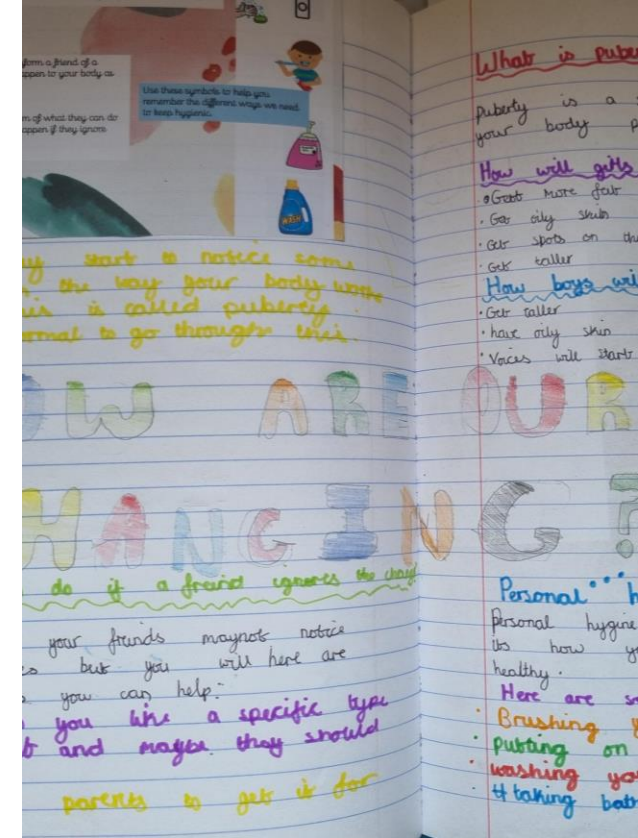 form a friend of a
appen to your body as
m of what they can do
appen if they ignore
Use these symbols to help you
remember the different ways we need
to keep hygienic.
WASH
y start to notice some
the way your body works
is is called puberty.
ormal to go through this.
OW ARE OUR
HANGING?
do if a freind ignores the
your friends maynot notice
but you will here are
you can help:
you like a specific type
and maybe they should
parents to get it for
What is pube
puberty is a
your body p
How will girls
• Gett more fair
• Get oily skin
• Get spots on the
• Get taller
How boys wil
• Get taller
• have oily skin
• Voices will start
Personal h
Personal hygine
its how y
healthy.
Here are s
• Brushing y
• putting on
• washing yo
taking bat